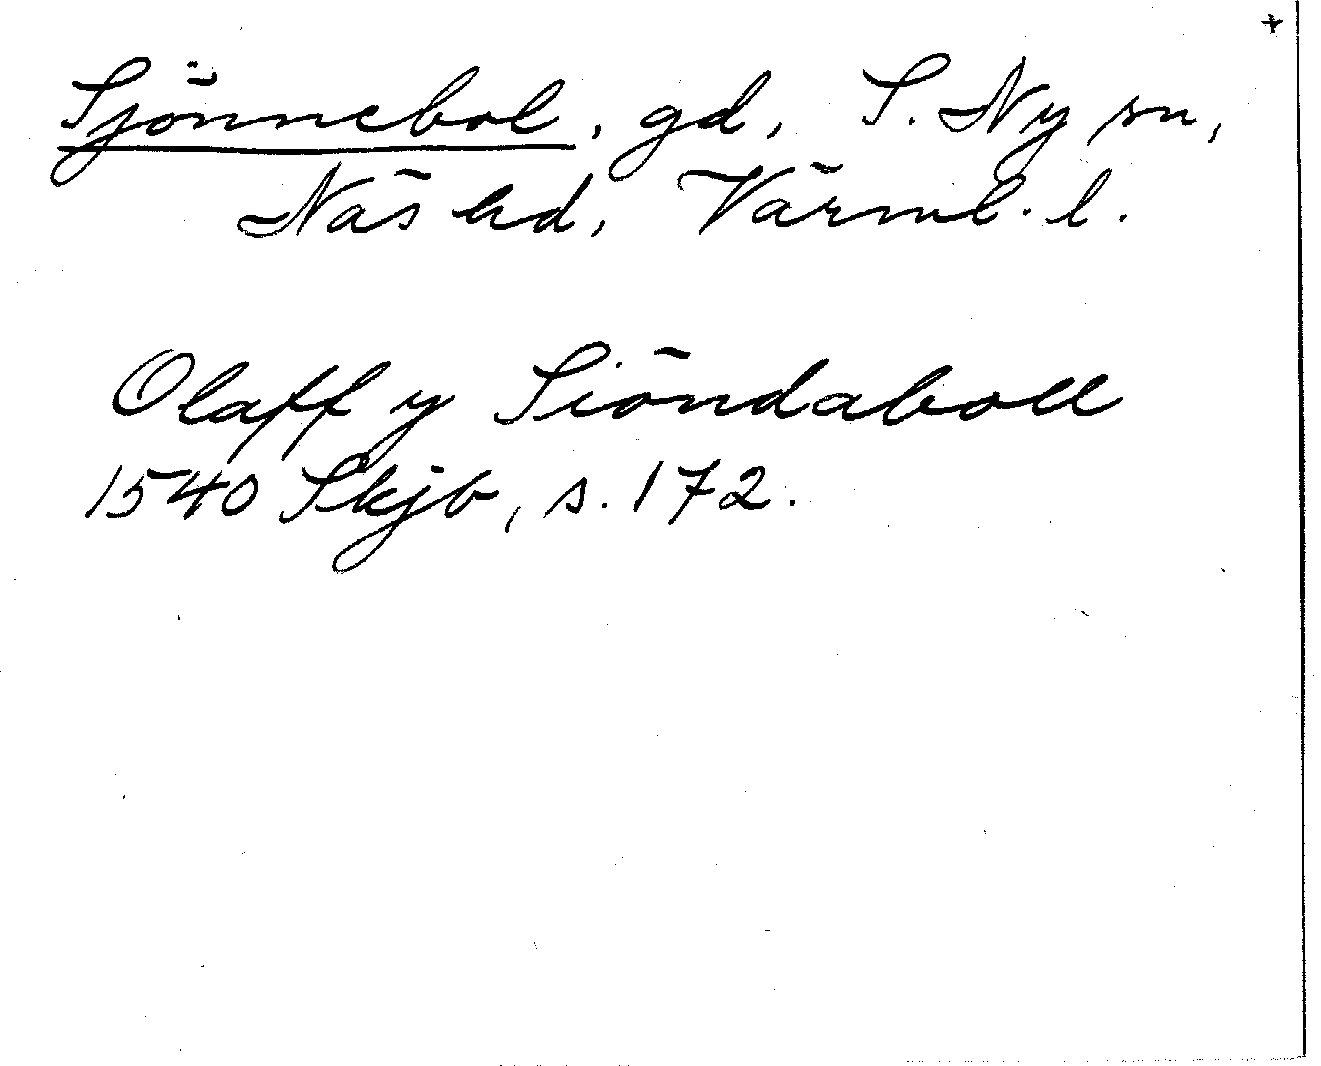 +
Sjönnebol, gd, S. Ny sn,
Näs hd, Värml. l.
Olaff y Siöndaboll
1540 Skjb, s. 172.